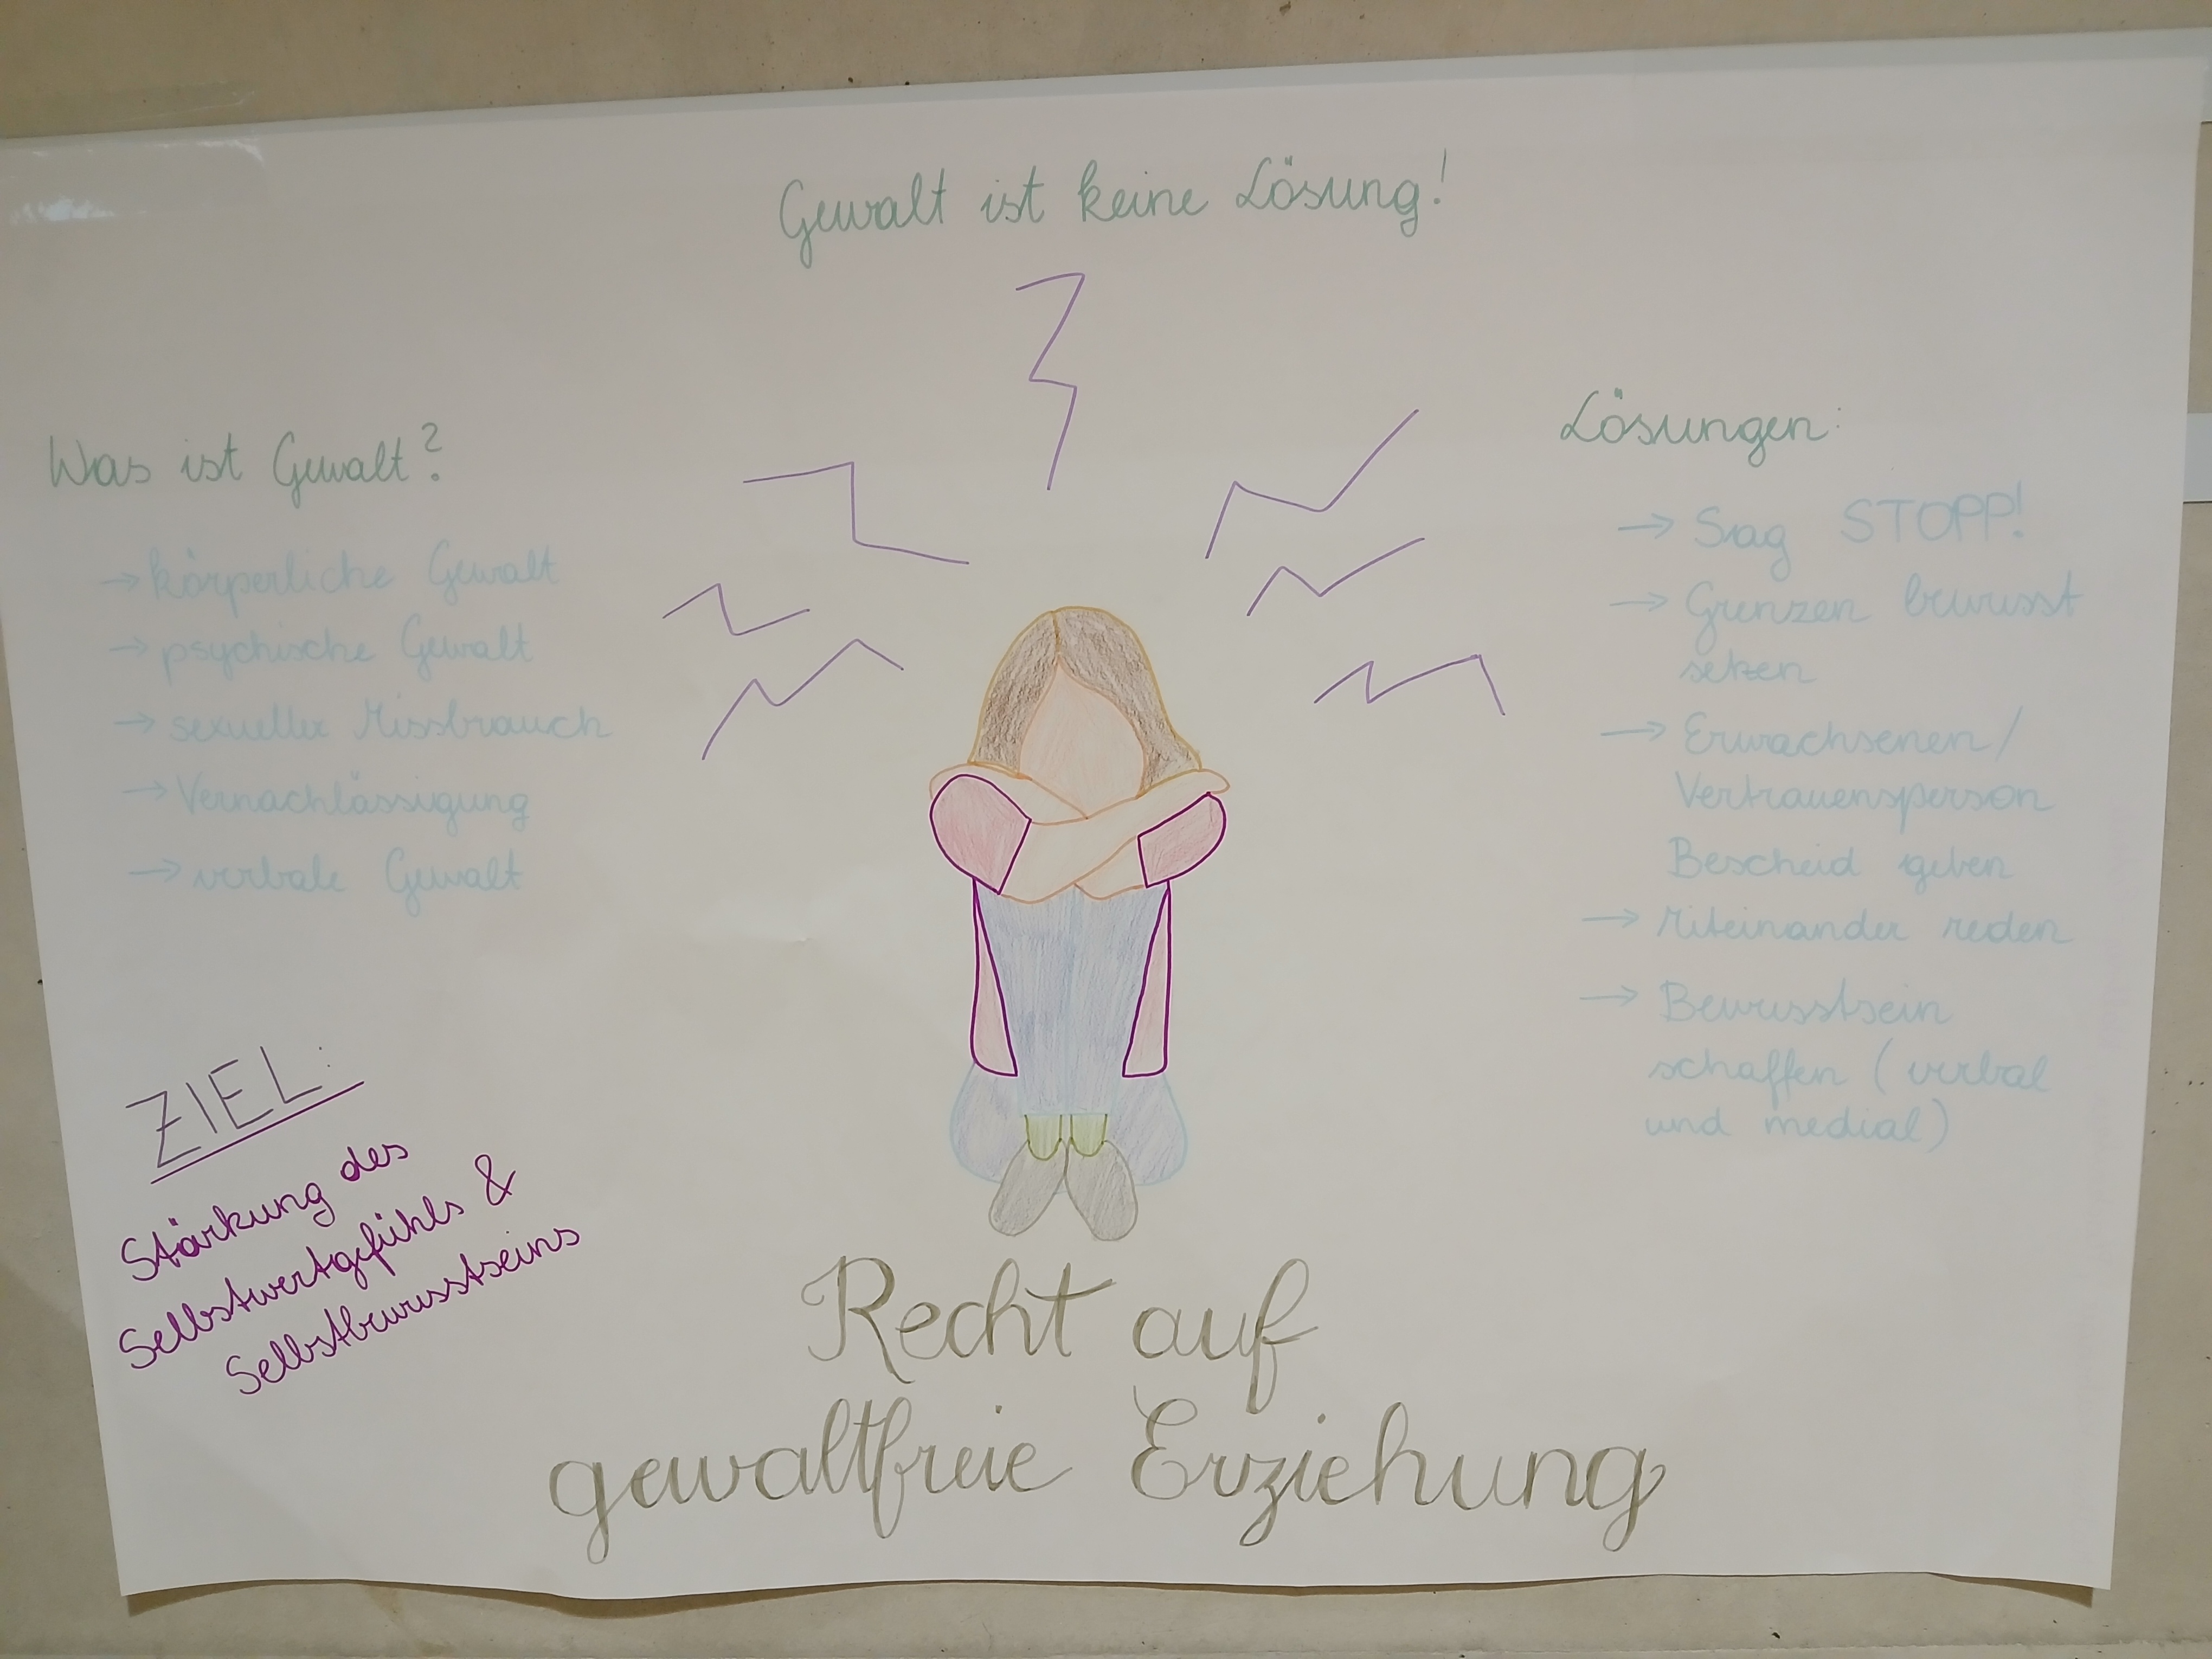 Gewalt ist keine Lösung!
Was ist Gewalt?
→ körperliche Gewalt
→ psychische Gewalt
→ sexueller Missbrauch
→ Vernachlässigung
→ verbale Gewalt
Lösungen:
→ Sag STOPP!
→ Grenzen bewusst
setzen
→ Erwachsenen/
Vertrauensperson
Bescheid geben
→ Miteinander reden
→ Bewusstsein
schaffen (verbal
und medial)
ZIEL:
Stärkung des
Selbstwertgefühls &
Selbstbewusstseins
Recht auf
gewaltfreie Erziehung